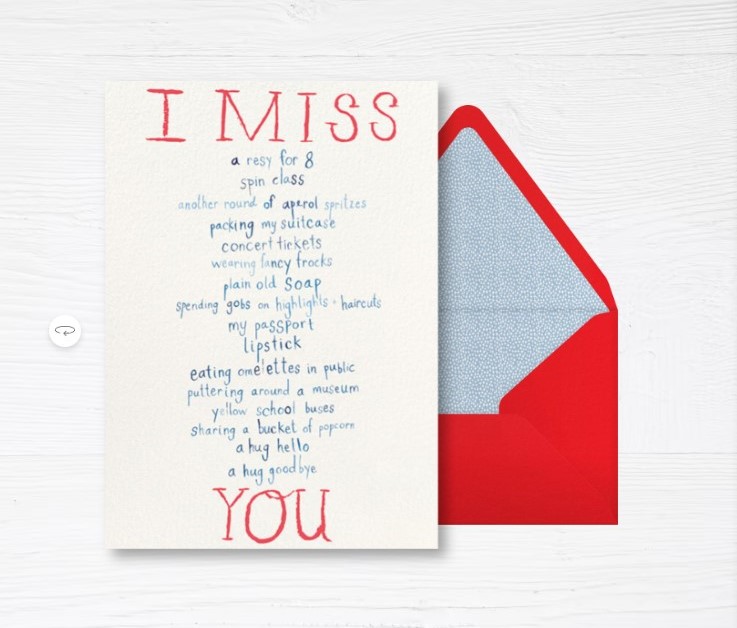 I MISS
a resy for 8
spin class
another round of aperol spritzes
packing my suitcase
concert tickets
wearing fancy frocks
plain old soap
spending gobs on highlights + haircuts
my passport
lipstick
eating omelettes in public
puttering around a museum
yellow school buses
sharing a bucket of popcorn
a hug hello
a hug goodbye
YOU